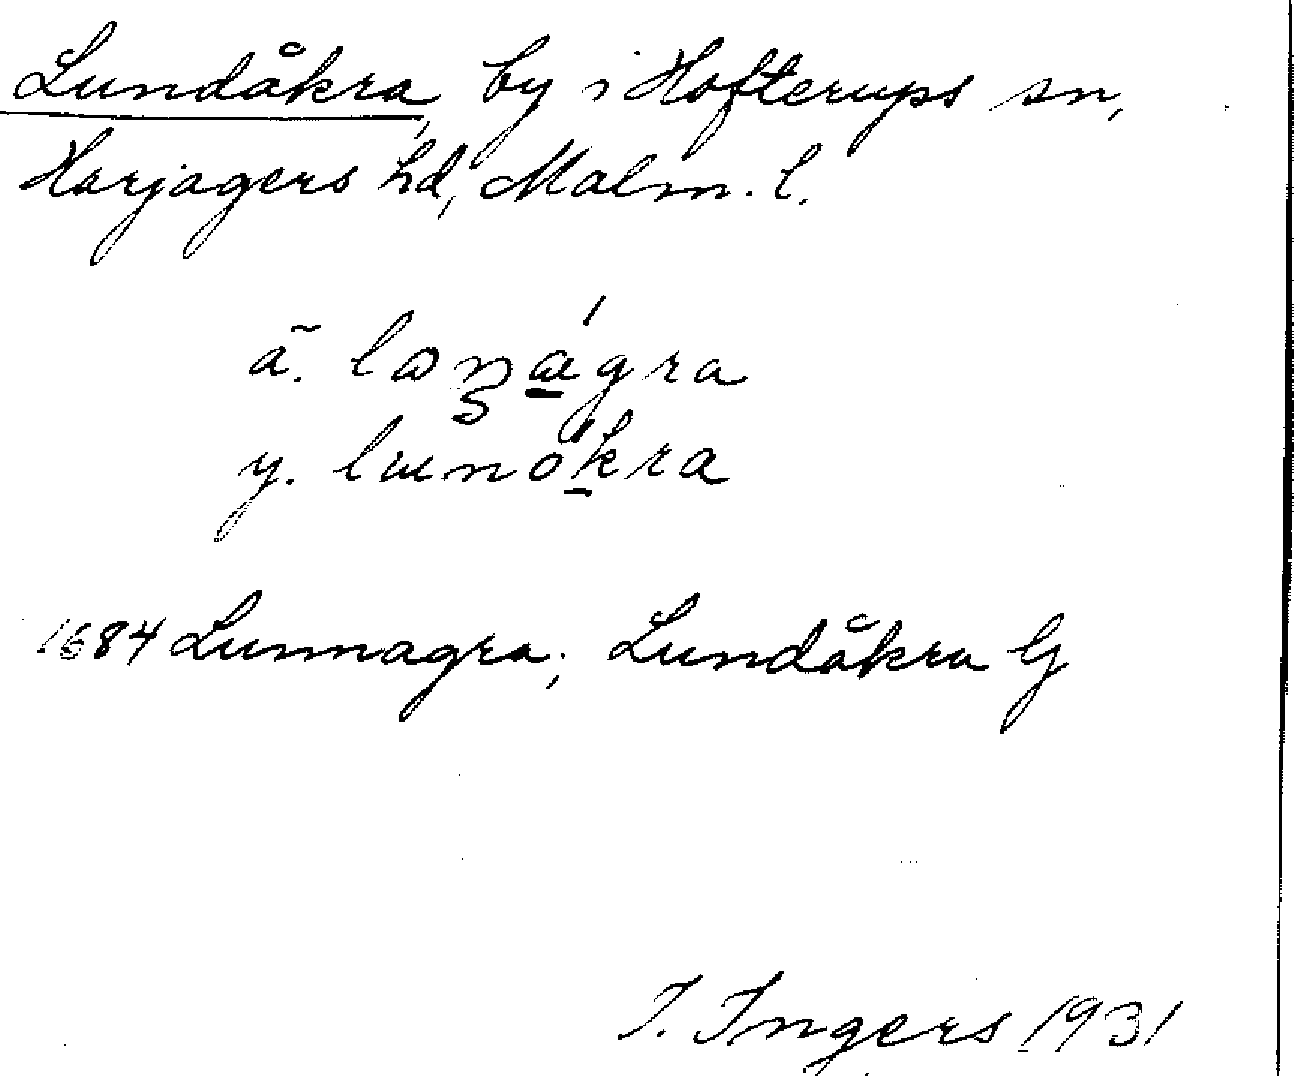 Lundåkra, by i Hofterups sn,
Harjagers hd, Malm. l.
ä. loŋágra
y. lunókra
1684 Lunnagra; Lundåkra G
I. Ingers 1931